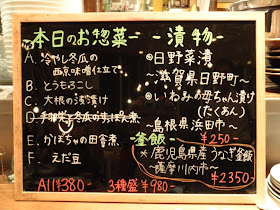 本日のお惣菜
A. 冷やし冬瓜の
西京味噌仕立て
B. とうもろこし
C. 大根の浅漬け
E. かぼちゃの田舎煮
F. えだ豆
All ¥380-
3種盛 ¥980-
-漬物-
◎日野菜漬
～滋賀県日野町～
◎いわみのお母ちゃん漬け
(たくあん)
～島根県浜田市～
¥250-
釜飯
*鹿児島県産うなぎ釜飯
～薩摩川内市～
¥2350-